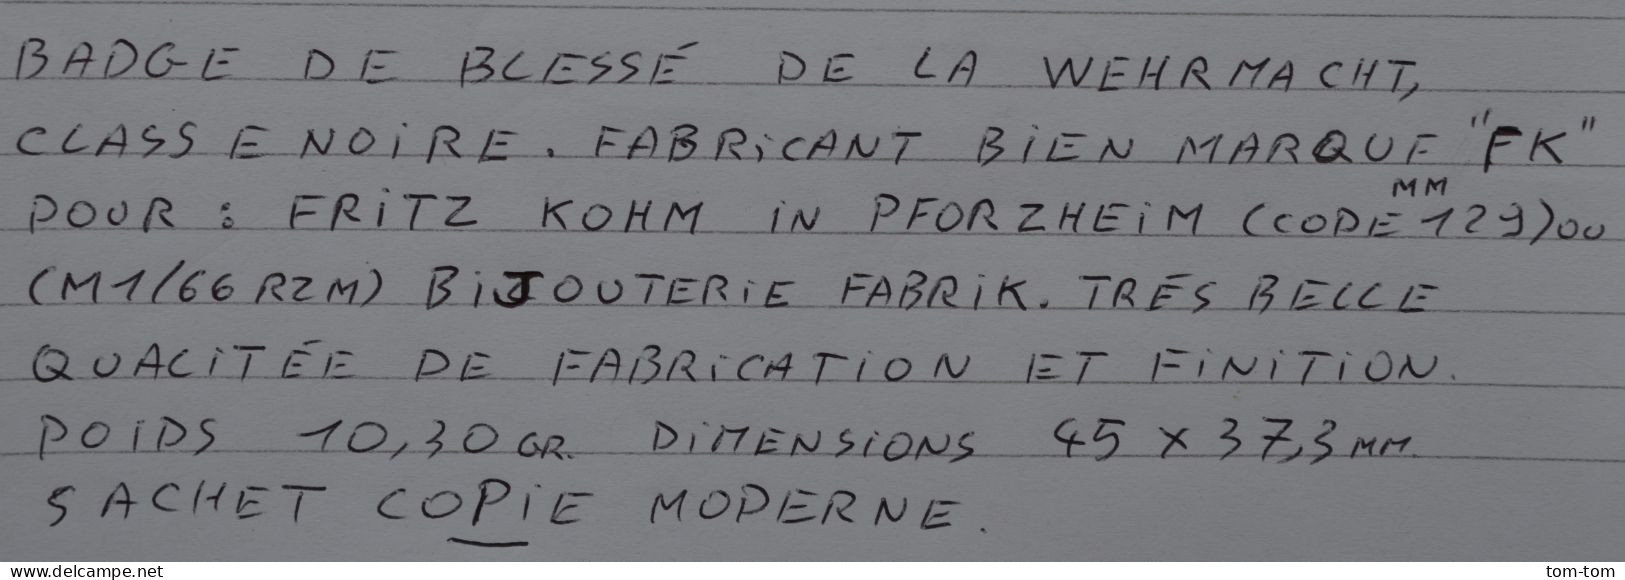 BADGE DE BLESSÉ DE LA WEHRMACHT,
CLASSE NOIRE. FABRICANT BIEN MARQUE "FK"
POUR : FRITZ KOHM IN PFORZHEIM (CODE MM 129) OU
(M1/66 RZM) BIJOUTERIE FABRIK. TRÉS BELLE
QUALITÉE DE FABRICATION ET FINITION.
POIDS 10,30 GR. DIMENSIONS 45 x 37,3 MM.
SACHET COPIE MODERNE.
www.delcampe.net
tom-tom